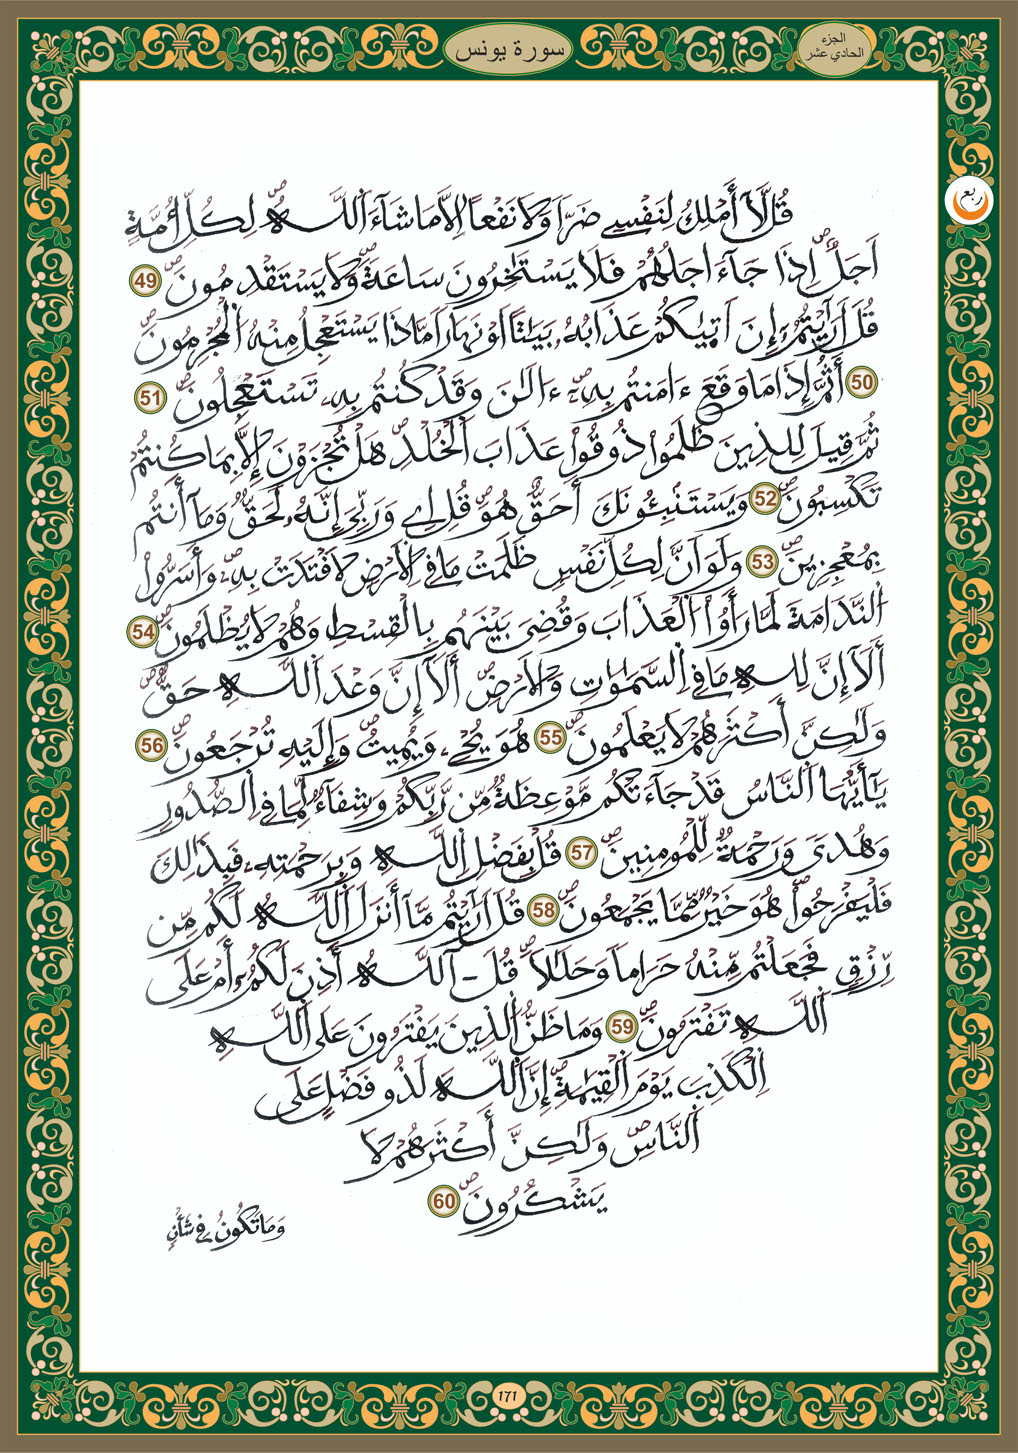 سورة يونس
الجزء
الحادي عشر
ربع
قُل لَّآ أَمْلِكُ لِنَفْسِے ضَرّاً وَلَا نَفْعاً اِلَّا مَا شَآءَ اَللَّهُ لِكُلِّ أُمَّةٍ
اَجَلٌ اِذَا جَآءَ اجَلُهُمْ فَلَا يَسْتَـٰٔخِرُونَ سَاعَةً وَلَا يَسْتَقْدِمُونَ 49
قُلَ اَرَآيْتُمُۥٓ إِنَ اَت۪يٰكُمْ عَذَابُهُۥ بَيَٰتاً اَوْ نَهَاراً مَّاذَا يَسْتَعْجِلُ مِنْهُ اُلْمُجْرِمُونَ
50 أَثُمَّ إِذَا مَا وَقَعَ ءَامَنتُم بِهِۦٓ ءَآلَٰنَ وَقَدْ كُنتُم بِهِۦ تَسْتَعْجِلُونَ 51
ثُمَّ قِيلَ لِلذِينَ ظَلَمُواْ ذُوقُواْ عَذَابَ اَلْخُلْدِ هَلْ تُجْزَوْنَ إِلَّا بِمَا كُنتُمْ
تَكْسِبُونَ 52 وَيَسْتَنۢبِـُٔونَكَ أَحَقٌّ هُوَ قُلِ اِے وَرَبِّيَ إِنَّهُۥ لَحَقٌّ وَمَآ أَنتُم
بِمُعْجِزِينَ 53 وَلَوَ اَنَّ لِكُلِّ نَفْسٍ ظَلَمَتْ مَا فِے اِلَارْضِ لَافْتَدَتْ بِهِۦ وَأَسَرُّواْ
اُلنَّدَامَةَ لَمَّا رَأَوُاْ اُلْعَذَابَ وَقُضِيَ بَيْنَهُم بِالْقِسْطِ وَهُمْ لَا يُظْلَمُونَ 54
أَلَآ إِنَّ لِلهِ مَا فِے اِلسَّمَٰوَٰتِ وَالَارْضِ أَلَآ إِنَّ وَعْدَ اَللَّهِ حَقٌّ
وَلَٰكِنَّ أَكْثَرَهُمْ لَا يَعْلَمُونَ 55 هُوَ يُحْيِۦ وَيُمِيتُ وَإِلَيْهِ تُرْجَعُونَ 56
يَٰٓأَيُّهَا اَلنَّاسُ قَدْ جَآءَتْكُم مَّوْعِظَةٌ مِّن رَّبِّكُمْ وَشِفَآءٌ لِّمَا فِے اِلصُّدُورِ
وَهُدىً وَرَحْمَةٌ لِّلْمُومِنِينَ 57 قُلْ بِفَضْلِ اِللَّهِ وَبِرَحْمَتِهِۦ فَبِذَٰلِكَ
فَلْيَفْرَحُواْ هُوَ خَيْرٌ مِّمَّا يَجْمَعُونَ 58 قُلَ اَرَآيْتُم مَّآ أَنزَلَ اَللَّهُ لَكُم مِّن
رِّزْقٍ فَجَعَلْتُم مِّنْهُ حَرَاماً وَحَلَٰلًا قُلَ ـ آللَّهُ أَذِنَ لَكُمُۥٓ أَمْ عَلَى
اَللَّهِ تَفْتَرُونَ 59 وَمَا ظَنُّ اُلذِينَ يَفْتَرُونَ عَلَى اَللَّهِ
اِلْكَذِبَ يَوْمَ اَلْقِيَٰمَةِ إِنَّ اَللَّهَ لَذُو فَضْلٍ عَلَى
اَلنَّاسِ وَلَٰكِنَّ أَكْثَرَهُمْ لَا
يَشْكُرُونَ 60
وَمَا تَكُونُ فِے شَأْنٍ
171